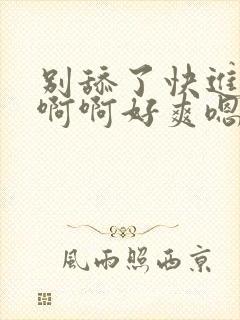 别舔了快进
啊啊好爽嗯
風雨照西京